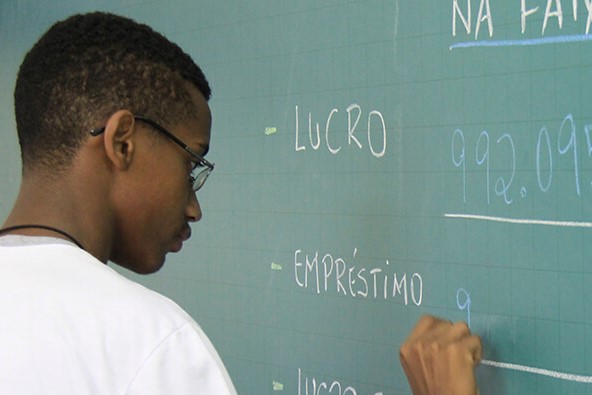 NA FAIX
LUCRO 992.095
EMPRÉSTIMO 9
LUCRO